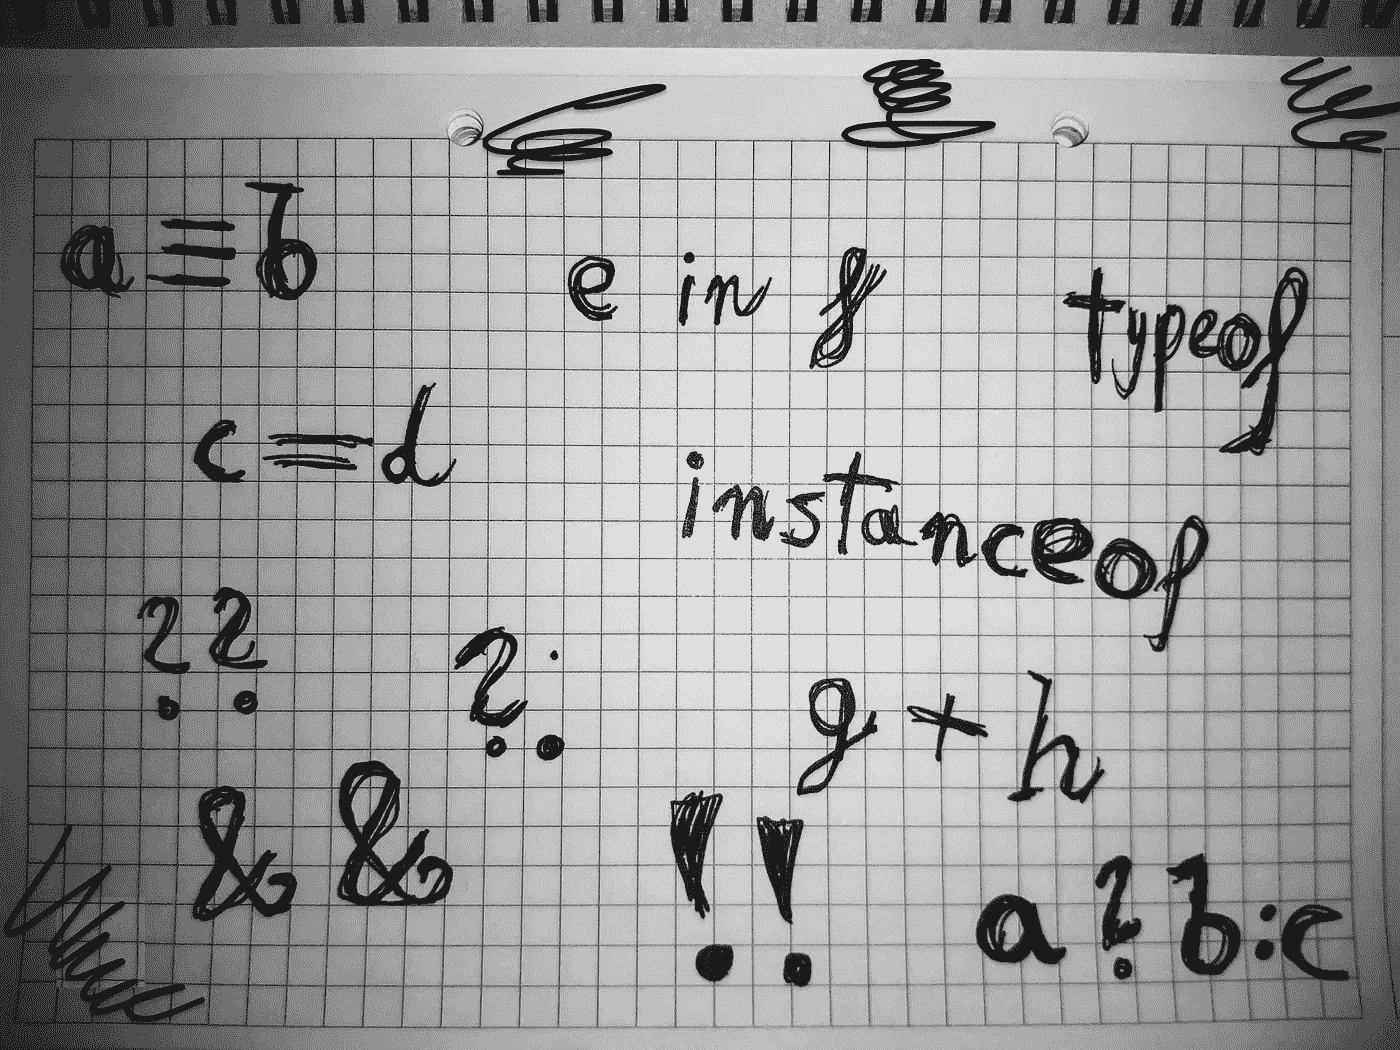 a ≡ b
e in f
typeof
c = d
instanceof
??
?:
g + h
&&
!!
a ? b : c